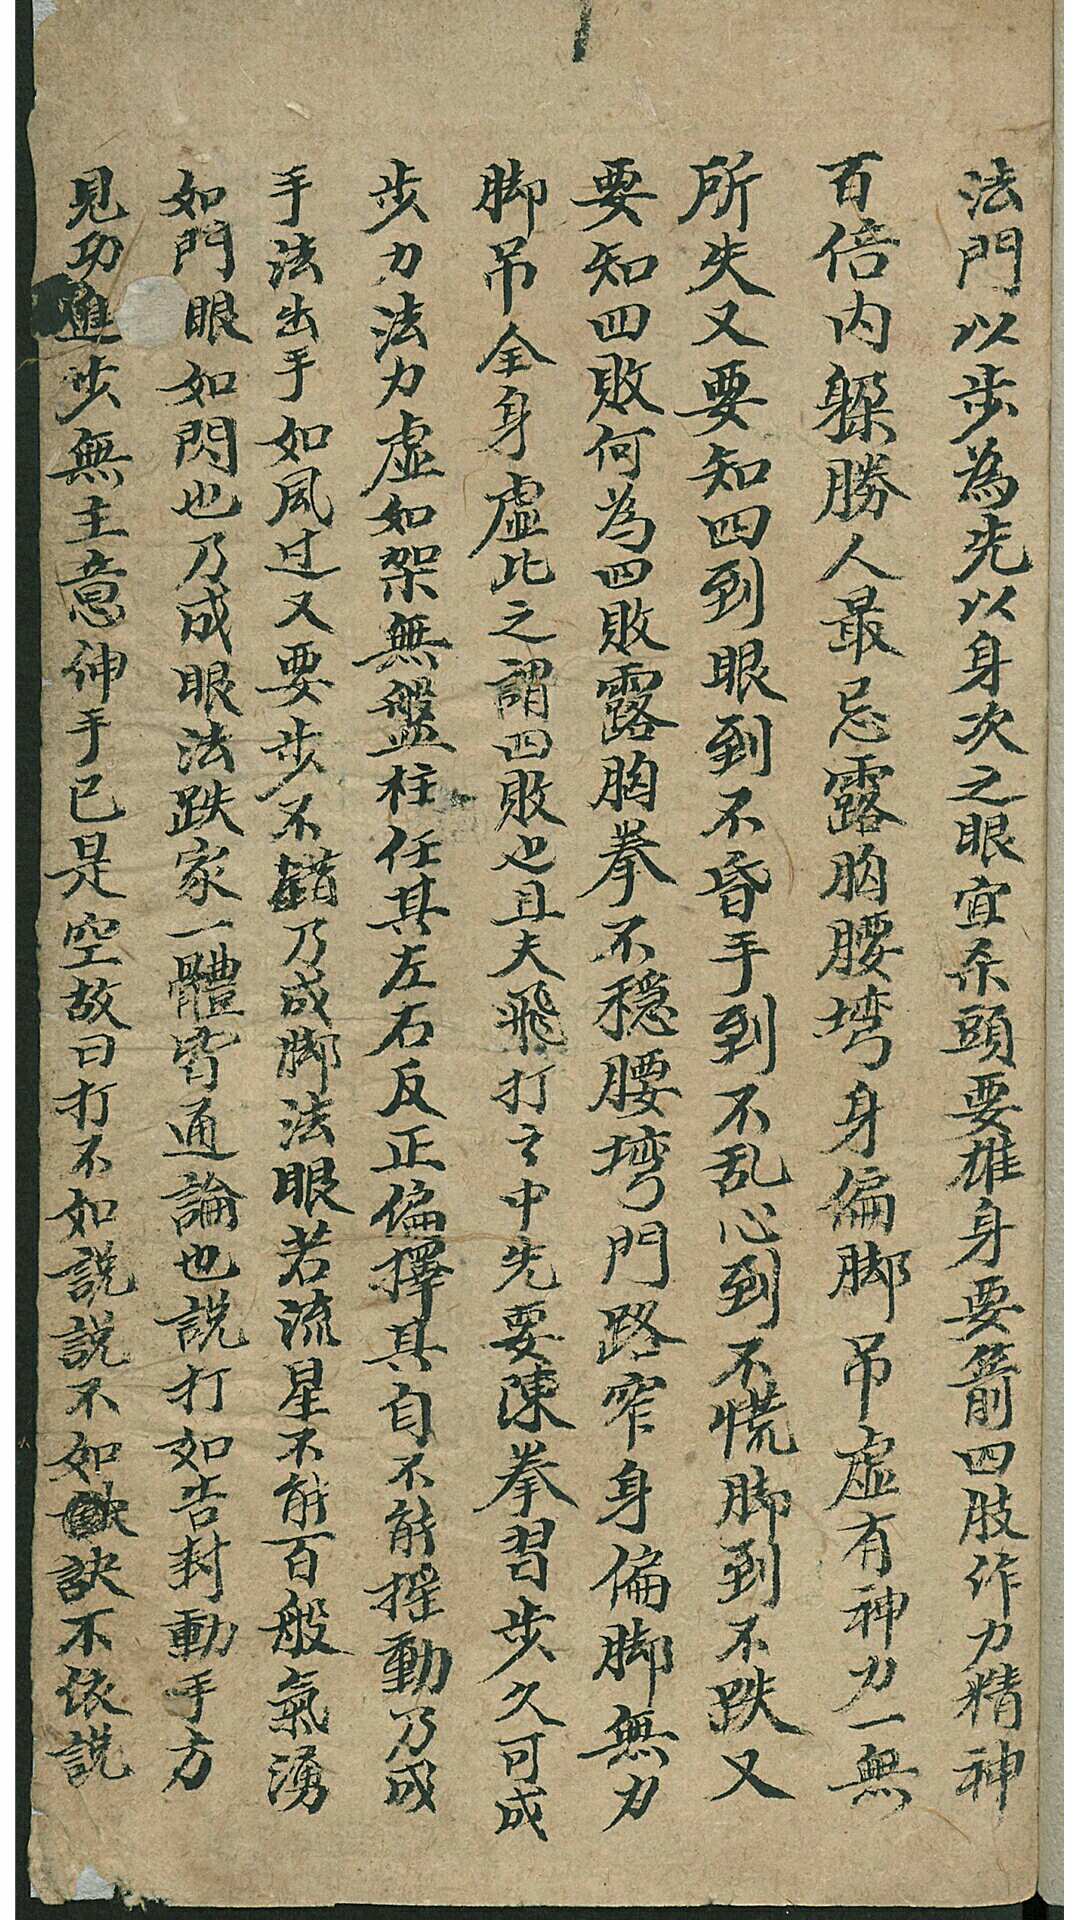 法門以步為先以身次之眼宜杀頭要雄身要箭四肢作力精神
百倍内躲勝人最忌露胸腰塆身偏脚吊虚有神力一無
所失又要知四到眼到不昏手到不乱心到不慌脚到不跌又
要知四敗何為四敗露胸拳不穩腰塆門路窄身偏脚無力
脚吊全身虚此之謂四敗也且夫飛打之中先要陳拳習步久可成
步力法力虚如架無盤柱任其左右反正偏擇其自不能摇動乃成
手法出手如風过又要步不錯乃成脚法眼若流星不能百般氣湧
如門眼如閃也乃成眼法跌家一體皆通論也説打如告封動手方
見功進步無主意伸手已是空故曰打不如説説不如訣訣不依説